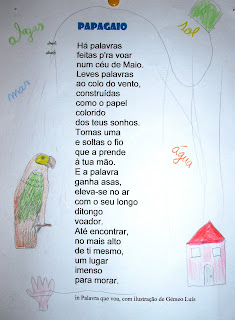 algas
sol
mar
água
PAPAGAIO
Há palavras
feitas p'ra voar
num céu de Maio.
Leves palavras
ao colo do vento,
construídas
como o papel
colorido
dos teus sonhos.
Tomas uma
e soltas o fio
que a prende
à tua mão.
E a palavra
ganha asas,
eleva-se no ar
com o seu longo
ditongo
voador.
Até encontrar,
no mais alto
de ti mesmo,
um lugar
imenso
para morar.
in Palavra que voa, com ilustração de Gémeo Luís